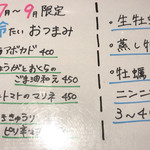 7月〜9月限定
冷たいおつまみ
アボカド 400
しょうがとおくらの
ごま油和え 450
トマトのマリネ 450
きゅうり
ピリ辛
・生牡
・蒸し牡
・牡蠣
ニンニ
3〜4